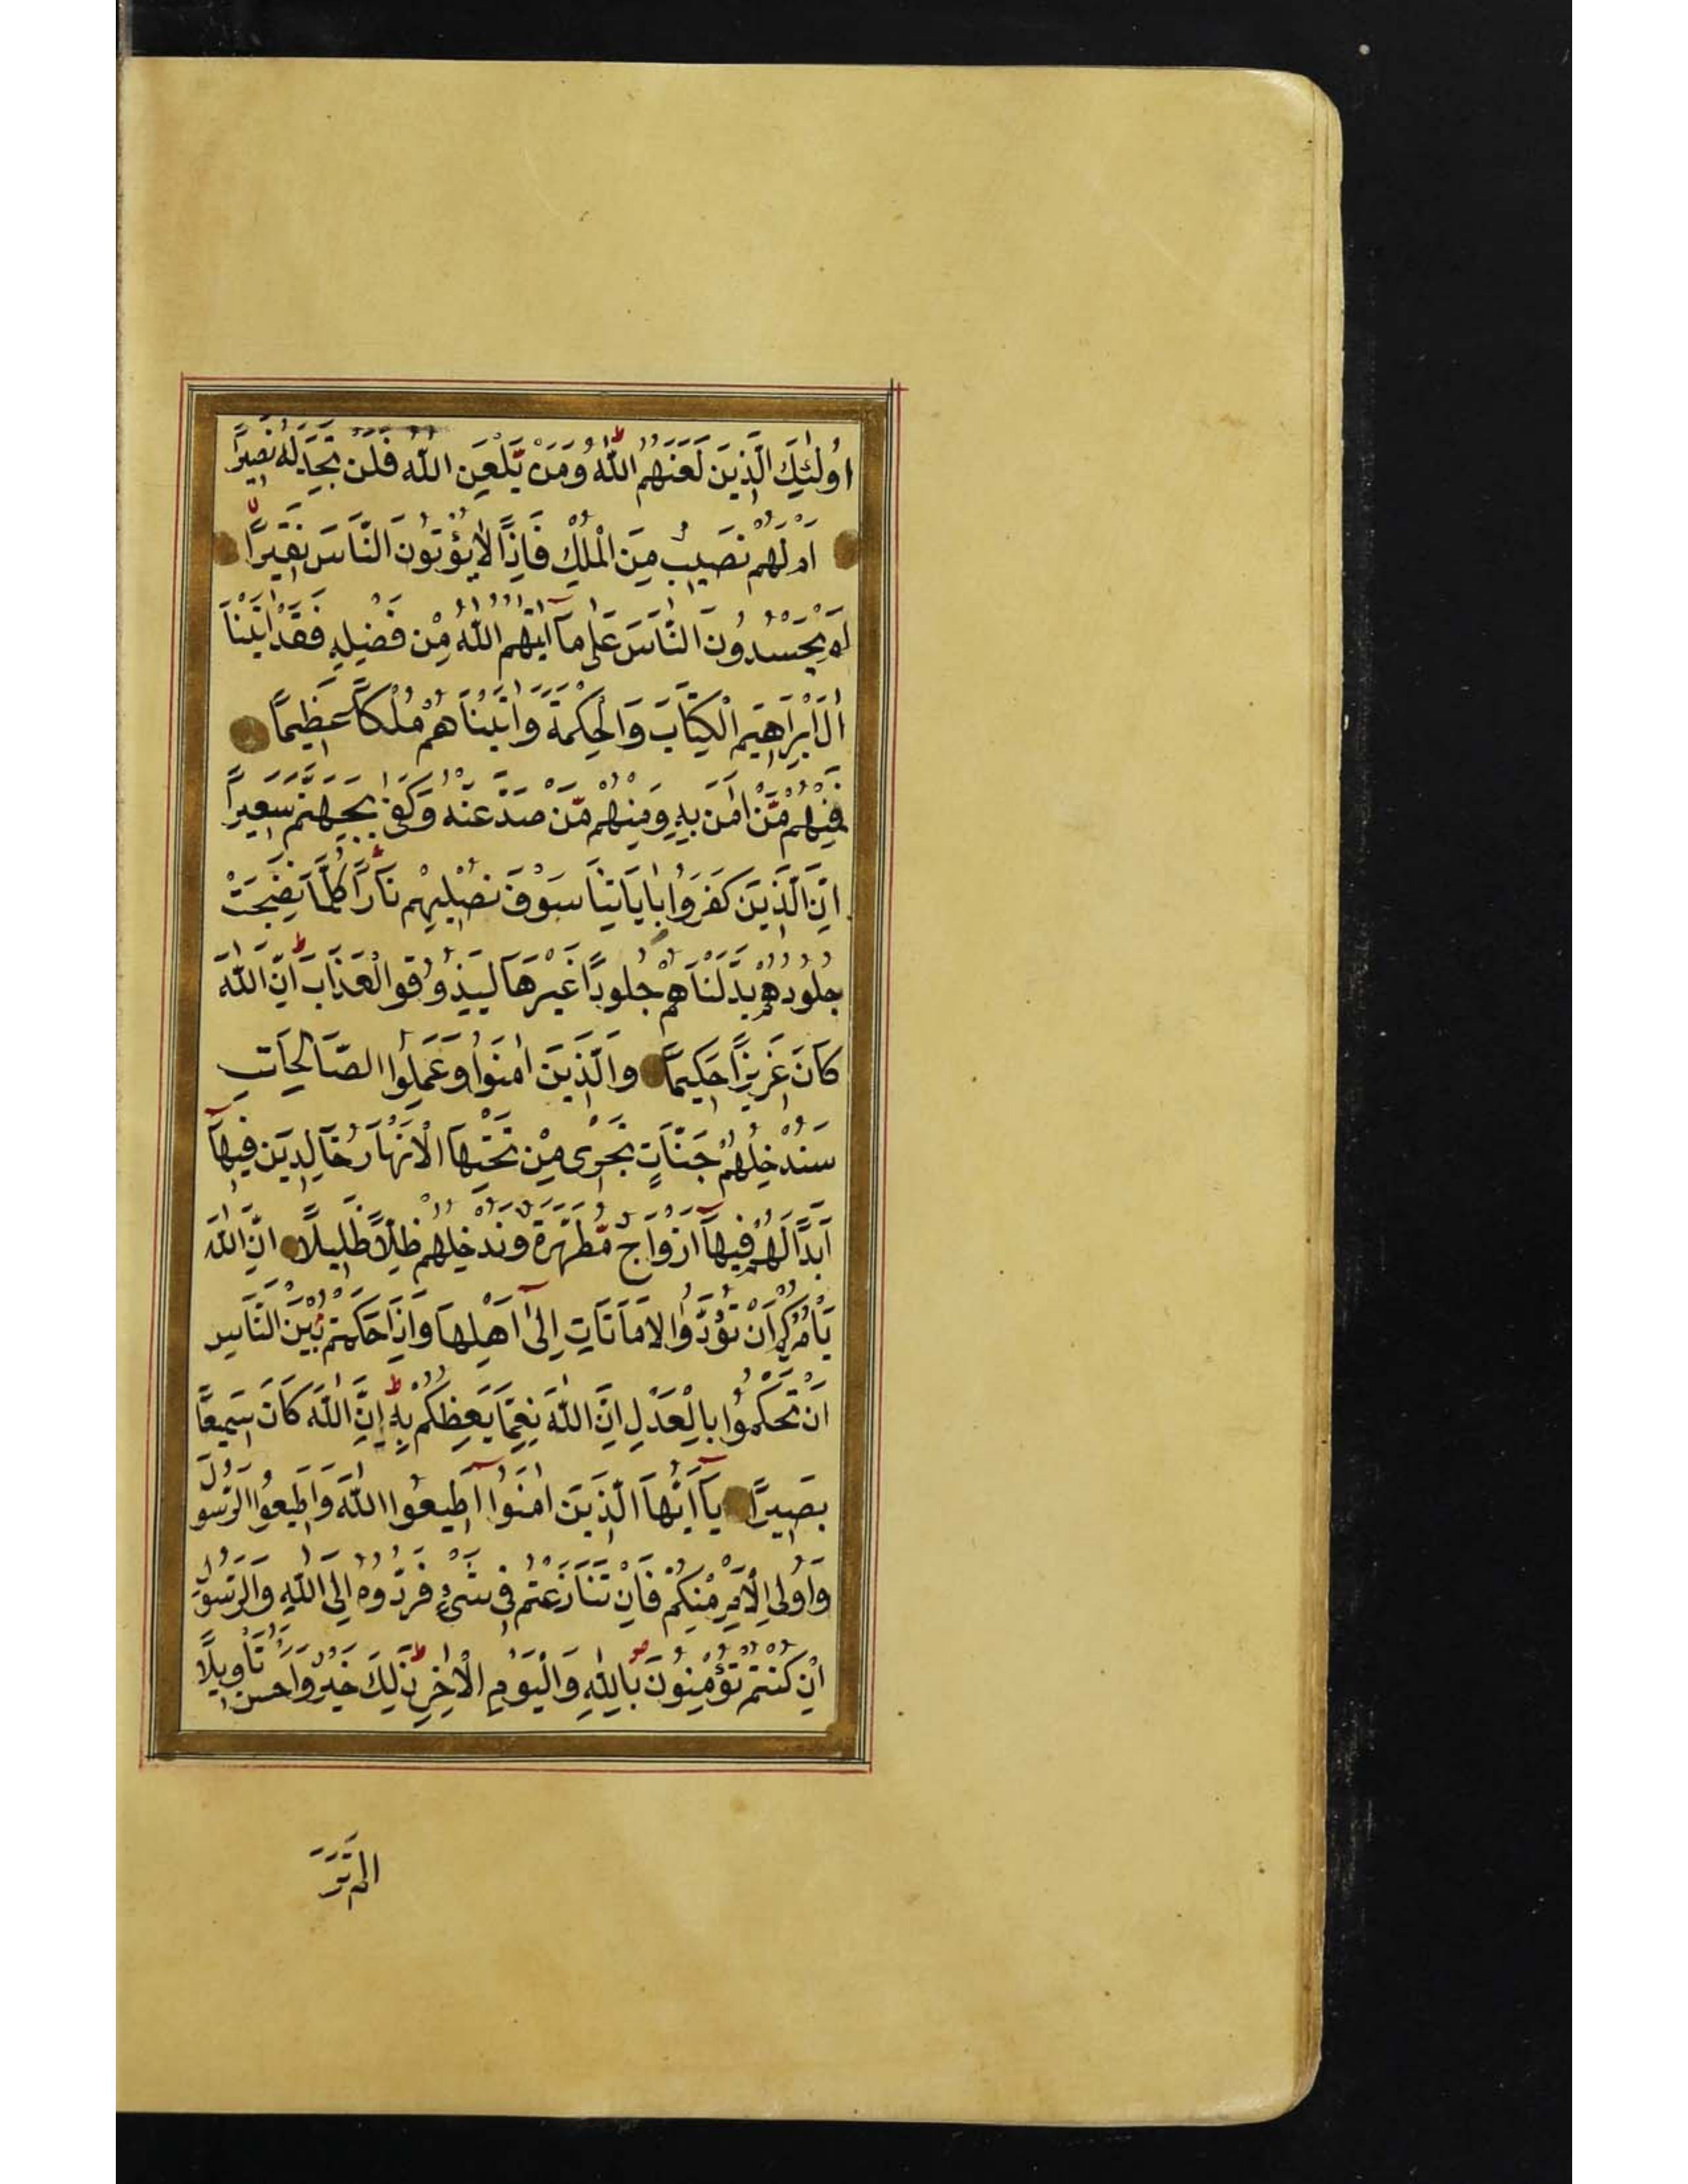 اُولٰئِكَ الَّذِينَ لَعَنَهُمُ اللّٰهُ وَمَنْ يَلْعَنِ اللّٰهُ فَلَنْ تَجِدَ لَهُ نَصِيرًا
اَمْ لَهُمْ نَصِيبٌ مِنَ الْمُلْكِ فَاِذًا لَا يُؤْتُونَ النَّاسَ نَقِيرًا
اَمْ يَحْسُدُونَ النَّاسَ عَلٰى مَآ اٰتٰيهُمُ اللّٰهُ مِنْ فَضْلِهِ فَقَدْ اٰتَيْنَا
اٰلَ اِبْرَاهِيمَ الْكِتَابَ وَالْحِكْمَةَ وَاٰتَيْنَاهُمْ مُلْكًا عَظِيمًا
فَمِنْهُمْ مَنْ اٰمَنَ بِهِ وَمِنْهُمْ مَنْ صَدَّ عَنْهُ وَكَفٰى بِجَهَنَّمَ سَعِيرًا
اِنَّ الَّذِينَ كَفَرُوا بِاٰيَاتِنَا سَوْفَ نُصْلِيهِمْ نَارًا كُلَّمَا نَضِجَتْ
جُلُودُهُمْ بَدَّلْنَاهُمْ جُلُودًا غَيْرَهَا لِيَذُوقُوا الْعَذَابَ اِنَّ اللّٰهَ
كَانَ عَزِيزًا حَكِيمًا وَالَّذِينَ اٰمَنُوا وَعَمِلُوا الصَّالِحَاتِ
سَنُدْخِلُهُمْ جَنَّاتٍ تَجْرِى مِنْ تَحْتِهَا الْاَنْهَارُ خَالِدِينَ فِيهَآ
اَبَدًا لَهُمْ فِيهَآ اَزْوَاجٌ مُطَهَّرَةٌ وَنُدْخِلُهُمْ ظِلًّا ظَلِيلًا اِنَّ اللّٰهَ
يَأْمُرُكُمْ اَنْ تُؤَدُّوا الْاَمَانَاتِ اِلٰىٓ اَهْلِهَا وَاِذَا حَكَمْتُمْ بَيْنَ النَّاسِ
اَنْ تَحْكُمُوا بِالْعَدْلِ اِنَّ اللّٰهَ نِعِمَّا يَعِظُكُمْ بِهِ اِنَّ اللّٰهَ كَانَ سَمِيعًا
بَصِيرًا يَآ اَيُّهَا الَّذِينَ اٰمَنُوٓا اَطِيعُوا اللّٰهَ وَاَطِيعُوا الرَّسُولَ
وَاُولِى الْاَمْرِ مِنْكُمْ فَاِنْ تَنَازَعْتُمْ فِى شَىْءٍ فَرُدُّوهُ اِلَى اللّٰهِ وَالرَّسُولِ
اِنْ كُنْتُمْ تُؤْمِنُونَ بِاللّٰهِ وَالْيَوْمِ الْاٰخِرِ ذٰلِكَ خَيْرٌ وَاَحْسَنُ تَأْوِيلًا
اَلَمْ تَرَ